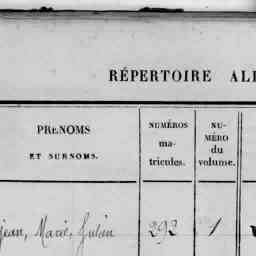 RÉPERTOIRE ALI
PRÉNOMS
ET SURNOMS.
NUMÉROS
ma-
tricules.
NU-
MÉRO
du
volume.
jean, Marie, Julien 292 1